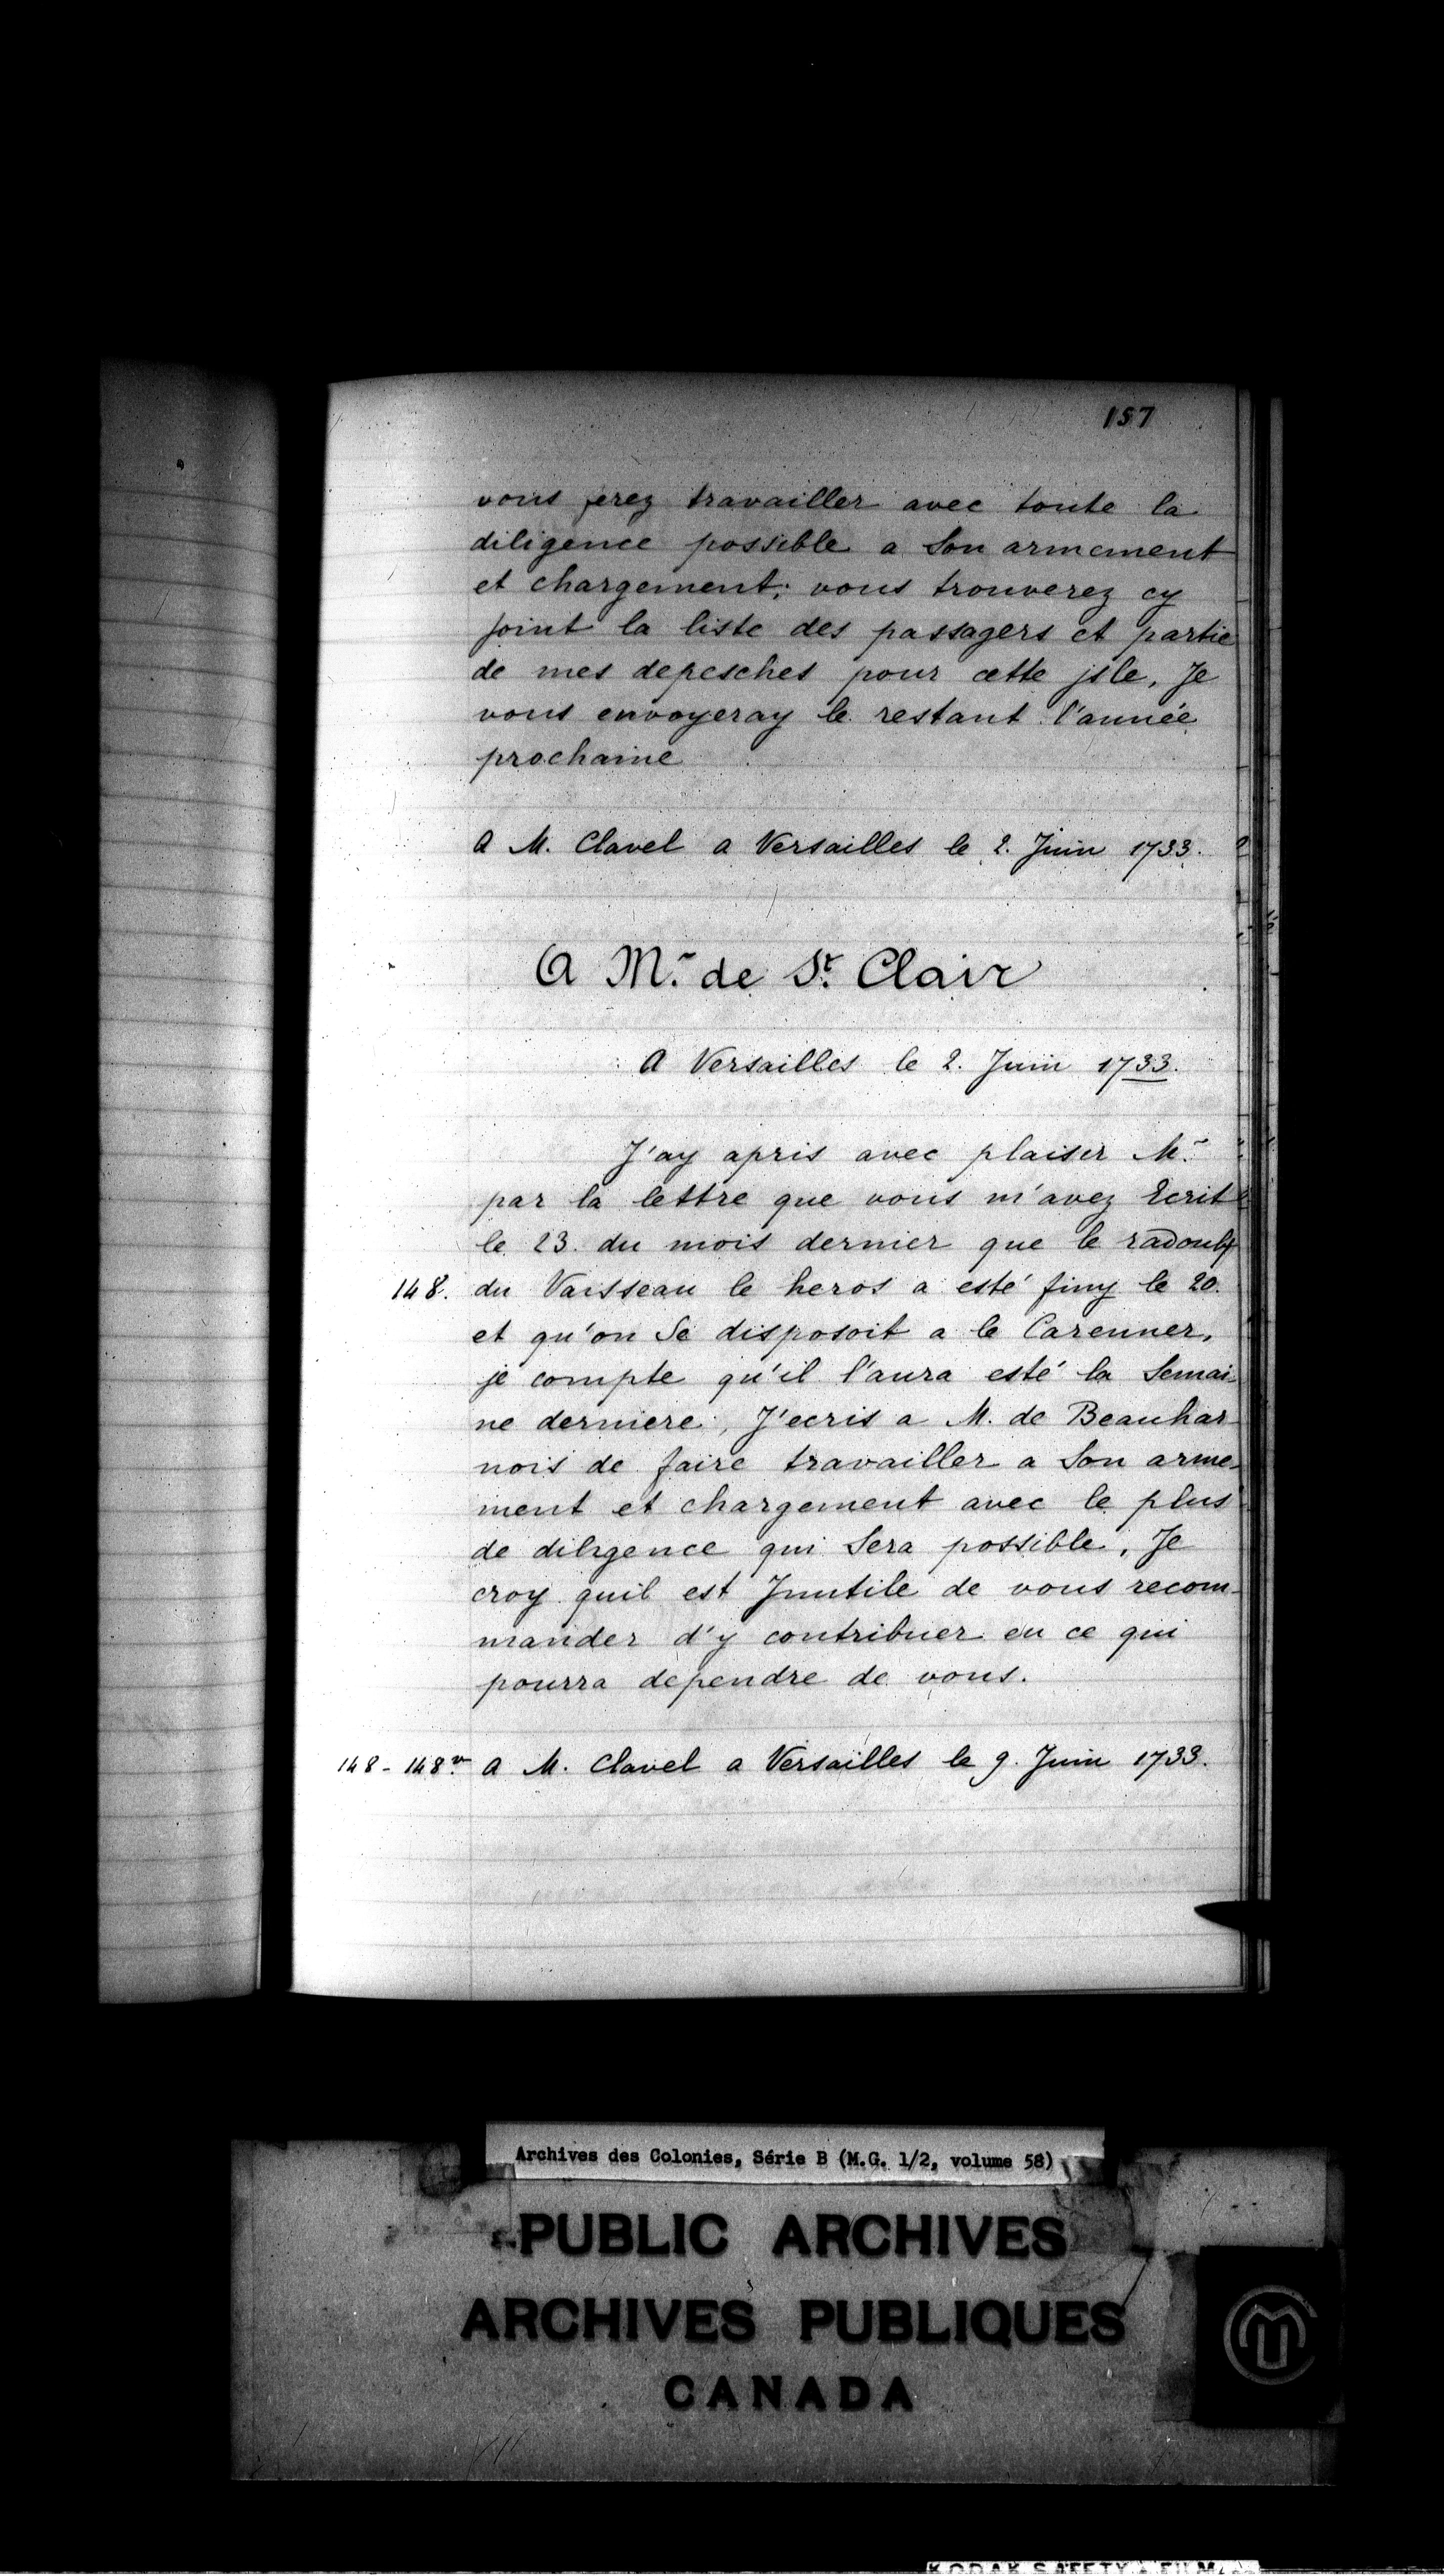 157
vous ferez travailler avec toute la
diligence possible a Son armement
et chargement; vous trouverez cy
joint la liste des passagers et partie
de mes depesches pour cette jsle, Je
vous envoyeray le restant l'année
prochaine
A M. Clavel a Versailles le 2. Juin 1733.
A Mr. de St. Clair
A Versailles le 2. Juin 1733.
J'ay apris avec plaisir Mr.
par la lettre que vous m'avez Ecrit
le 23. du mois dernier que le radoub
148. du Vaisseau le heros a esté finy le 20.
et qu'on Se disposoit a le Carenner,
je compte qu'il l'aura esté la Semai-
ne derniere, J'ecris a M. de Beauhar-
nois de faire travailler a Son arme-
ment et chargement avec le plus
de diligence qui Sera possible, Je
croy quil est Jnutile de vous recom-
mander d'y contribuer en ce qui
pourra dependre de vous.
148 - 148v. A M. Clavel a Versailles le 9. Juin 1733.
Archives des Colonies, Série B (M.G. 1/2, volume 58)
PUBLIC ARCHIVES
ARCHIVES PUBLIQUES
CANADA
KODAK SAFETY FILM